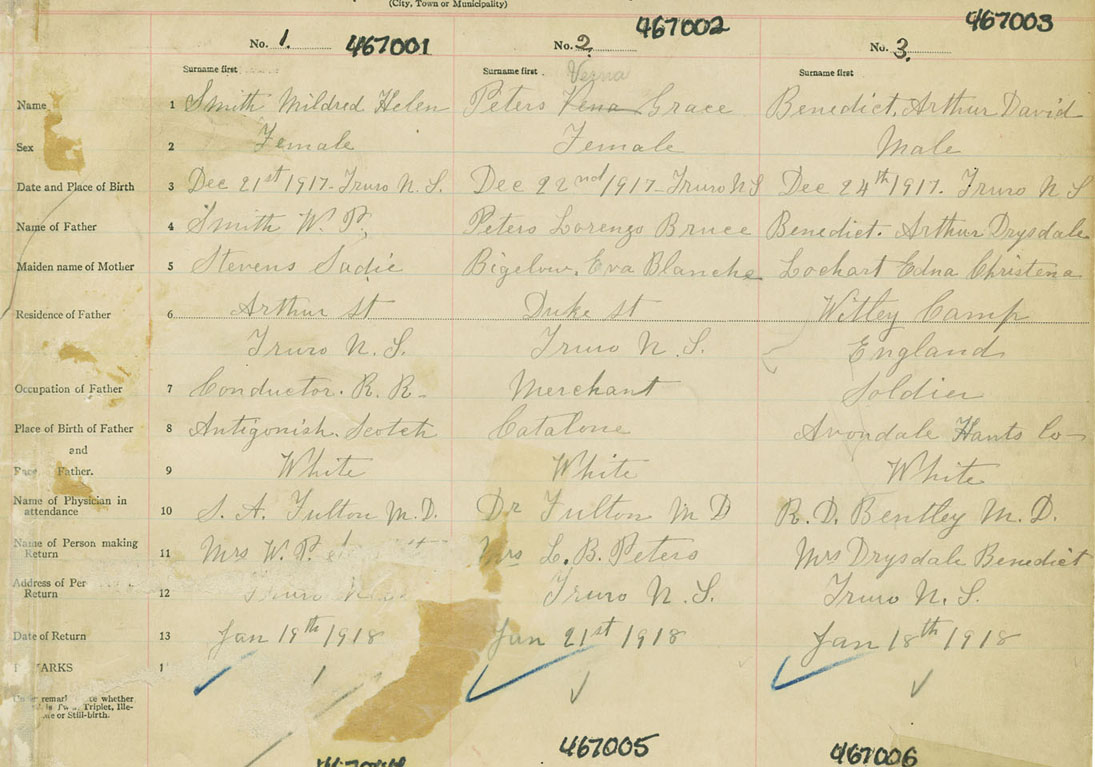 (City, Town or Municipality)
No. 1. 467001 No. 2. 467002 No. 3. 467003
Surname first Surname first Surname first
Verna
Name 1 Smith Mildred Helen Peters Vena Grace Benedict, Arthur David
Sex 2 Female Female Male
Date and Place of Birth 3 Dec 21st 1917-Truro N.S. Dec 22nd/1917-Truro NS Dec 24th/1917. Truro N S
Name of Father 4 Smith W. P. Peters Lorenzo Bruce Benedict. Arthur Drysdale
Maiden name of Mother 5 Stevens Sadie Bigelow, Eva Blanche Lochart Edna Christena
Residence of Father 6 Arthur St Duke St Witley Camp
Truro N.S. Truro N.S. England
Occupation of Father 7 Conductor. R. R. Merchant Soldier
Place of Birth of Father 8 Antigonish. Scotch Catalone Avondale Hants Co-
and
Father. 9 White White White
Name of Physician in
attendance 10 S. A. Fulton M.D. Dr Fulton M D R. D. Bentley M. D.
Name of Person making
Return 11 Mrs W. P. Mrs L. B. Peters Mrs Drysdale Benedict
Address of Per
Return 12 Truro N. Truro N.S. Truro N.S.
Date of Return 13 Jan 19th 1918 Jan 21st 1918 Jan 18th 1918
ARKS 1
remar whether
Triplet, Ille-
or Still-birth.
467005 467006